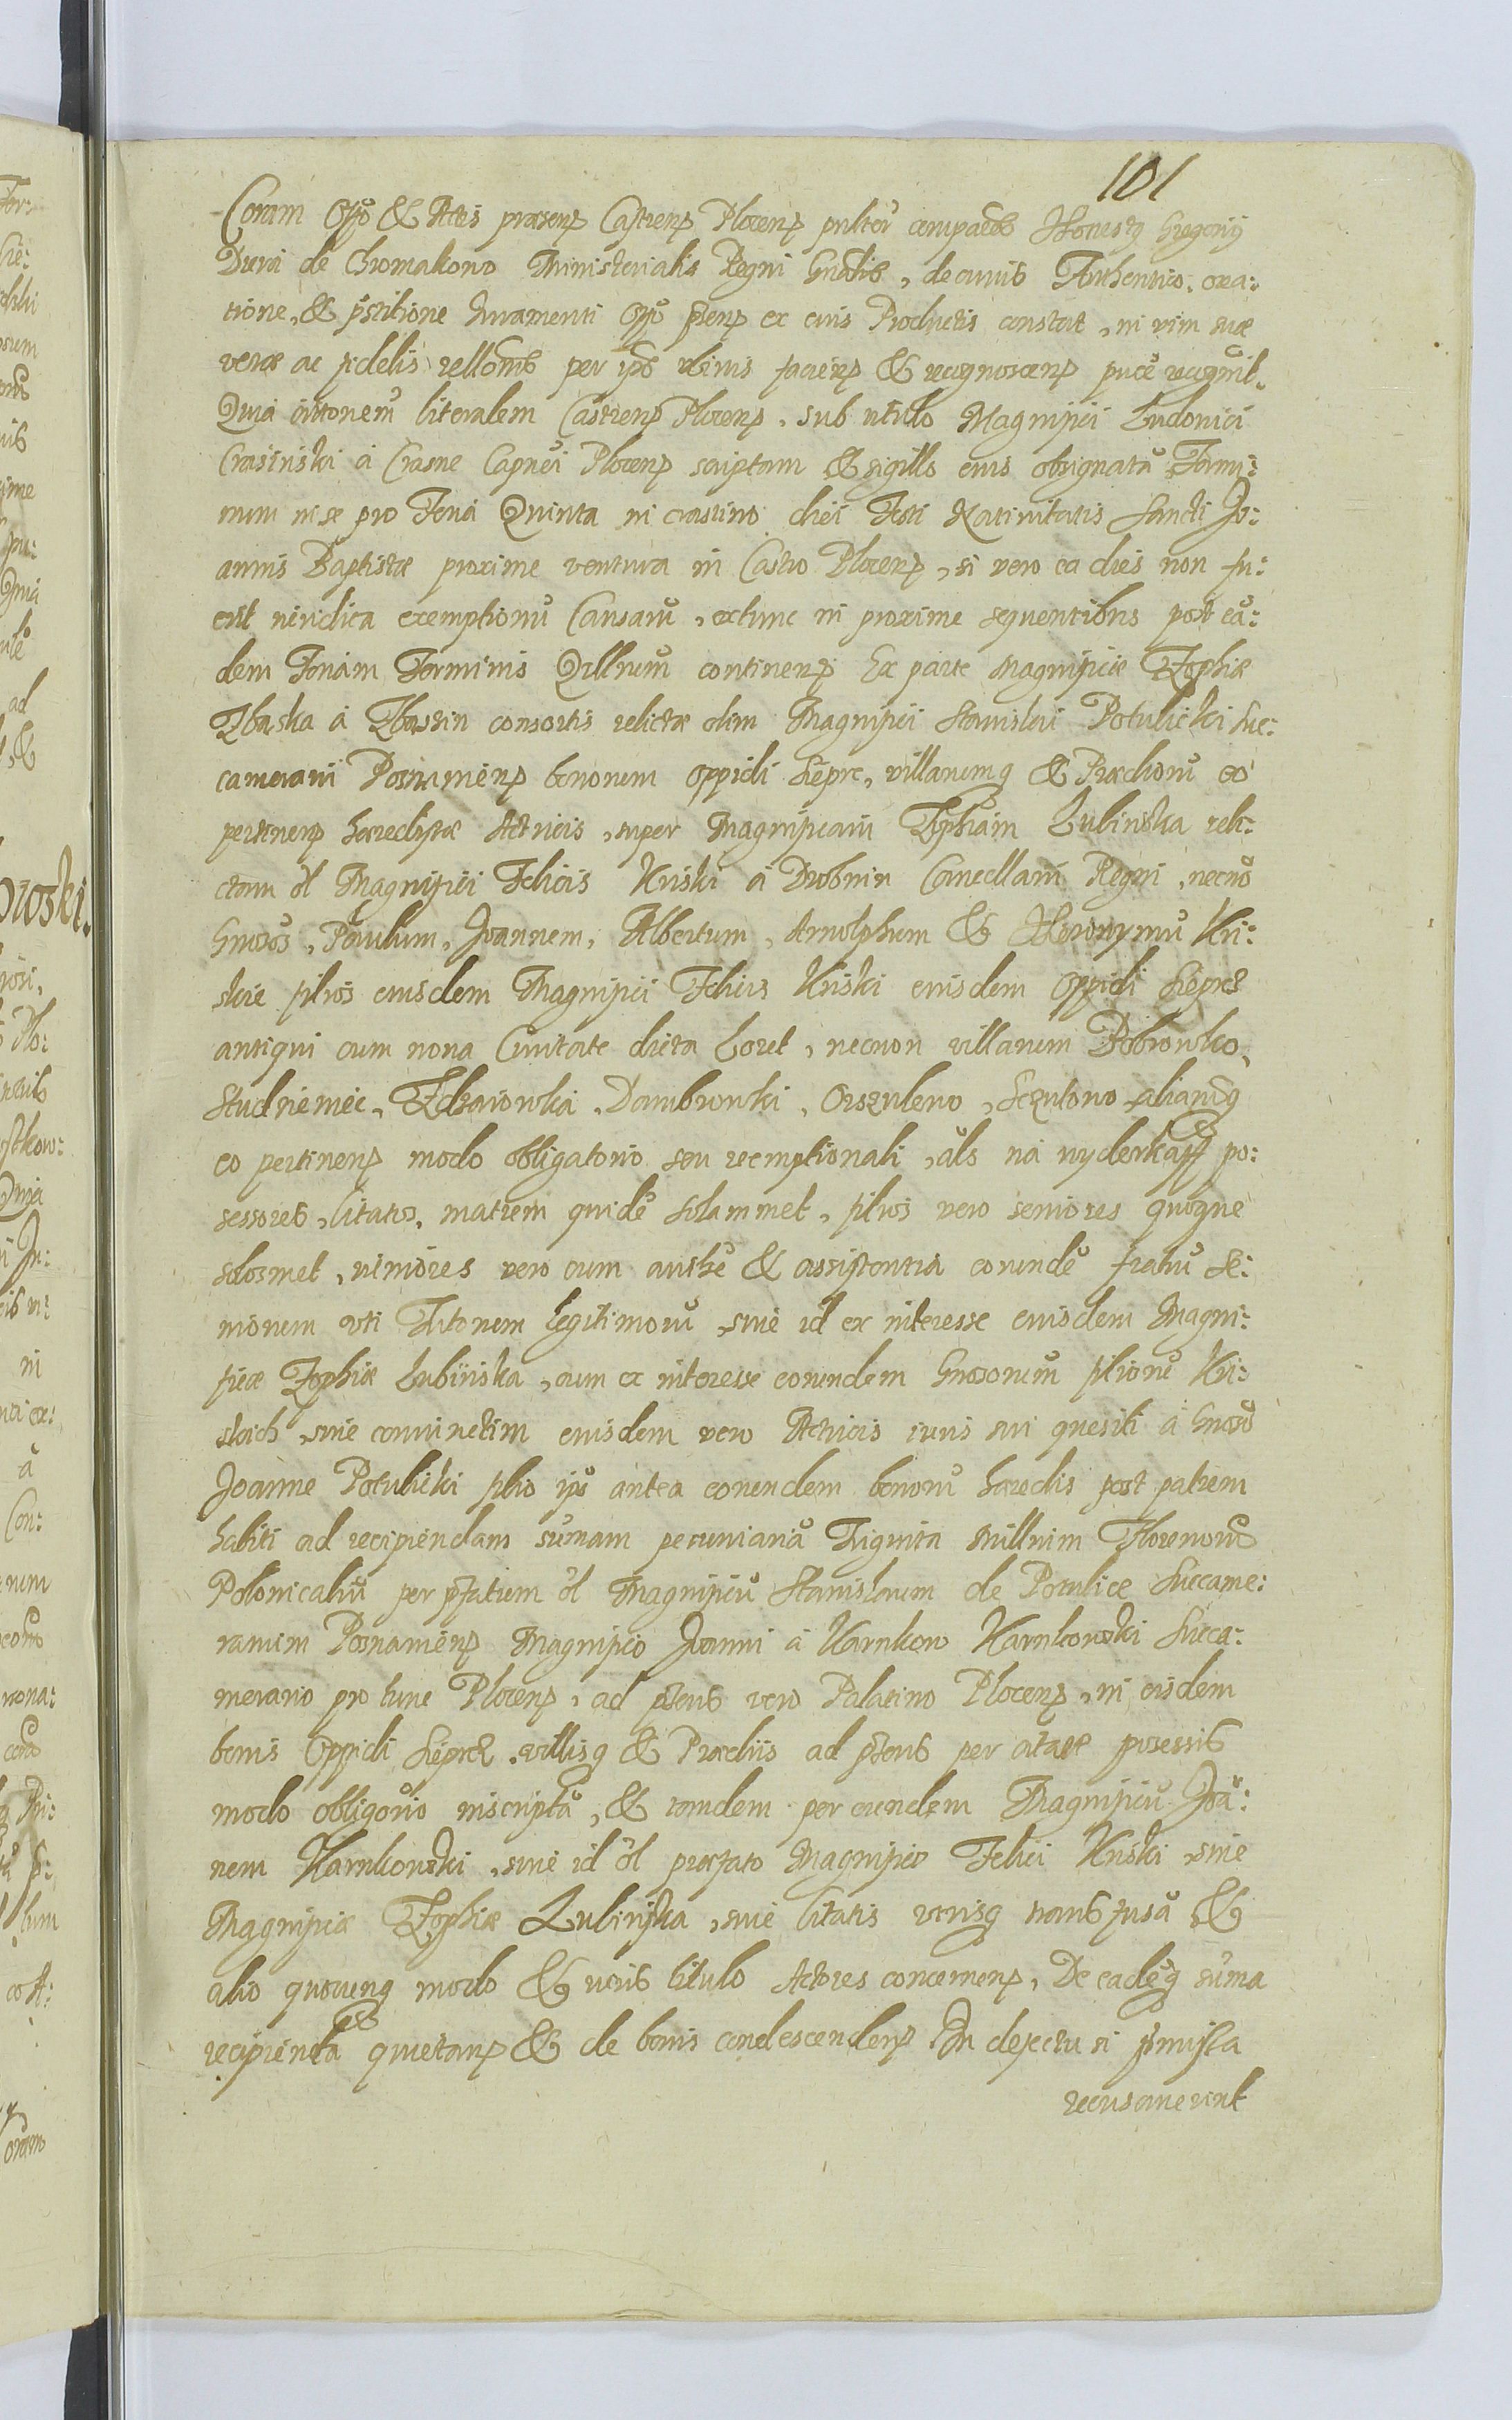 101
Coram Offo & Actis præsenꝭ Castrenꝭ Plocenꝭ comparens Honestꝭ Gregorij
de Chromakowo Ministerialis Regni Gnalis, de cuius Authentico crea:
tione, & pstitione Iuramenti Offo pntenꝭ ex eius Productis constat, in vim suæ
veræ ac fidelis rellonis per ipm desuper facienꝭ & recognoscenꝭ puce recognit.
Quia literalem Castrenꝭ Plocenꝭ, sub titulo Magnifici Ludouici
Crasinski à Crasne Capnei Plocenꝭ scriptam & sigillo eius obsignatã Termi:
num in se pro Feria Quinta in crastino diei Festi Natiuitatis Sancti Jo:
annis Baptistæ proxime ventura in Castro Plocenꝭ, si vero ea dies non fu:
erit iuridica exemptionũ Causarũ, extunc in proxime sequentibus post eã:
dem Feriam Terminis Qrllarum continenꝭ Ex parte Magnificæ Zophiæ
Zbaska à Zbaszin consortis relictæ olim Magnifici Stanislai Potulicki Suc:
camerarii Posnamenꝭ bonorum oppidi Siepre, villarumqꝫ & Prædiorũ eo
pertinenꝭ hæredissæ Actricis, super Magnificam Zophiam Lubinska reli:
ctam ol Magnifici Felicis Kriski à Drobnin Cancellarii Regni, necnõ
Gnosos, Paulum, Joannem, Albertum, Arnolphum & Hieronymũ Kri:
skie filios eiusdem Magnifici Felicis Kriski eiusdem Oppidi Sieprcz
antiqui cum noua Ciuitate dicta Loret, necnon villarum Bobrowko,
Studzieniec, Zdzaiowka, Dambrowki, Orszulewo, Szczutowo aliarumqꝫ
eo pertinenꝭ modo obligatorio seu reemptionali, als na wyderkaff po:
sessores, citatos, matrem quidẽ solammet, filios vero seniores quoque
solosmet, iuniores vero cum authe & assistentia eorundẽ fratrũ Se:
niorum uti Tutorum legitimorũ, siue id ex interesse eiusdem Magni:
ficæ Zophiæ Lubinska, cum ex interesse eorundem Gnosorum filiorũ Kri:
skich, siue coniunctim eiusdem vero Actricis iuris sui quesiti à Gnoso
Joanne Potulicki filio ipsꝰ antea eorundem bonorũ hæredis post patrem
habiti ad recipiendam sũmam pecuniariã Triginta Millium Florenorũ
Polonicaliũ per pfatum ol Magnificũ Stanislaum de Potulice Succame:
rarium Posnamenꝭ Magnifico Joanni à Karnkow Karnkowski Succa:
merario pro tunc Plocenꝭ, ad pntens vero Palatino Plocenꝭ, in eisdem
bonis Oppidi Sieprcz, villisqꝫ & Prædiis ad pntens per citatos possessis
modo obligorio inscriptã, & tandem per eundem Magnificũ Joã:
nem Karnkowski, siue id ol præfato Magnifico Felici Kriski, siue
Magnificæ Zophiæ Lubinska, siue citatis verisqꝫ transfusã &
alio quocunqꝫ modo & iuris titulo Actores concernenꝭ, De eadẽqꝫ sũma
recipienda quietanꝭ & de bonis condescendenꝭ. In defectu si pmissa
recusauerint